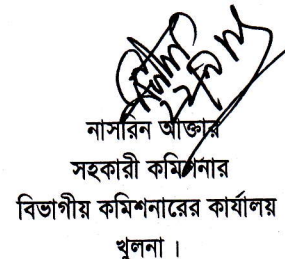 নাসরিন আক্তার
সহকারী কমিশনার
বিভাগীয় কমিশনারের কার্যালয়
খুলনা ।